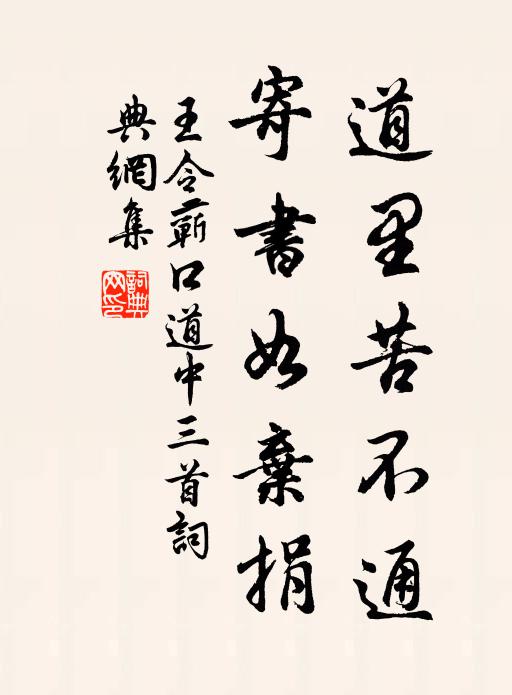 道里苦不通
寄書如棄捐
王令蘄口道中三首詞
典網集
詞典網印